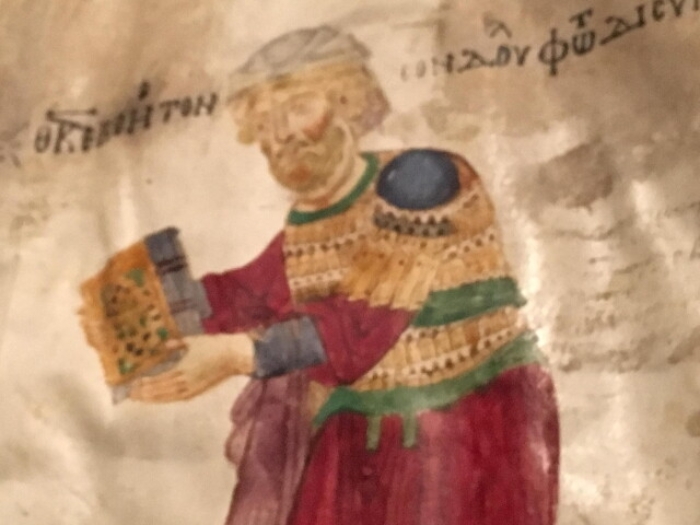 ΘΚΕ ΒΟΗΘ ΤΟΝ CΟΝ ΔΟΥΛ ΦΩΤ